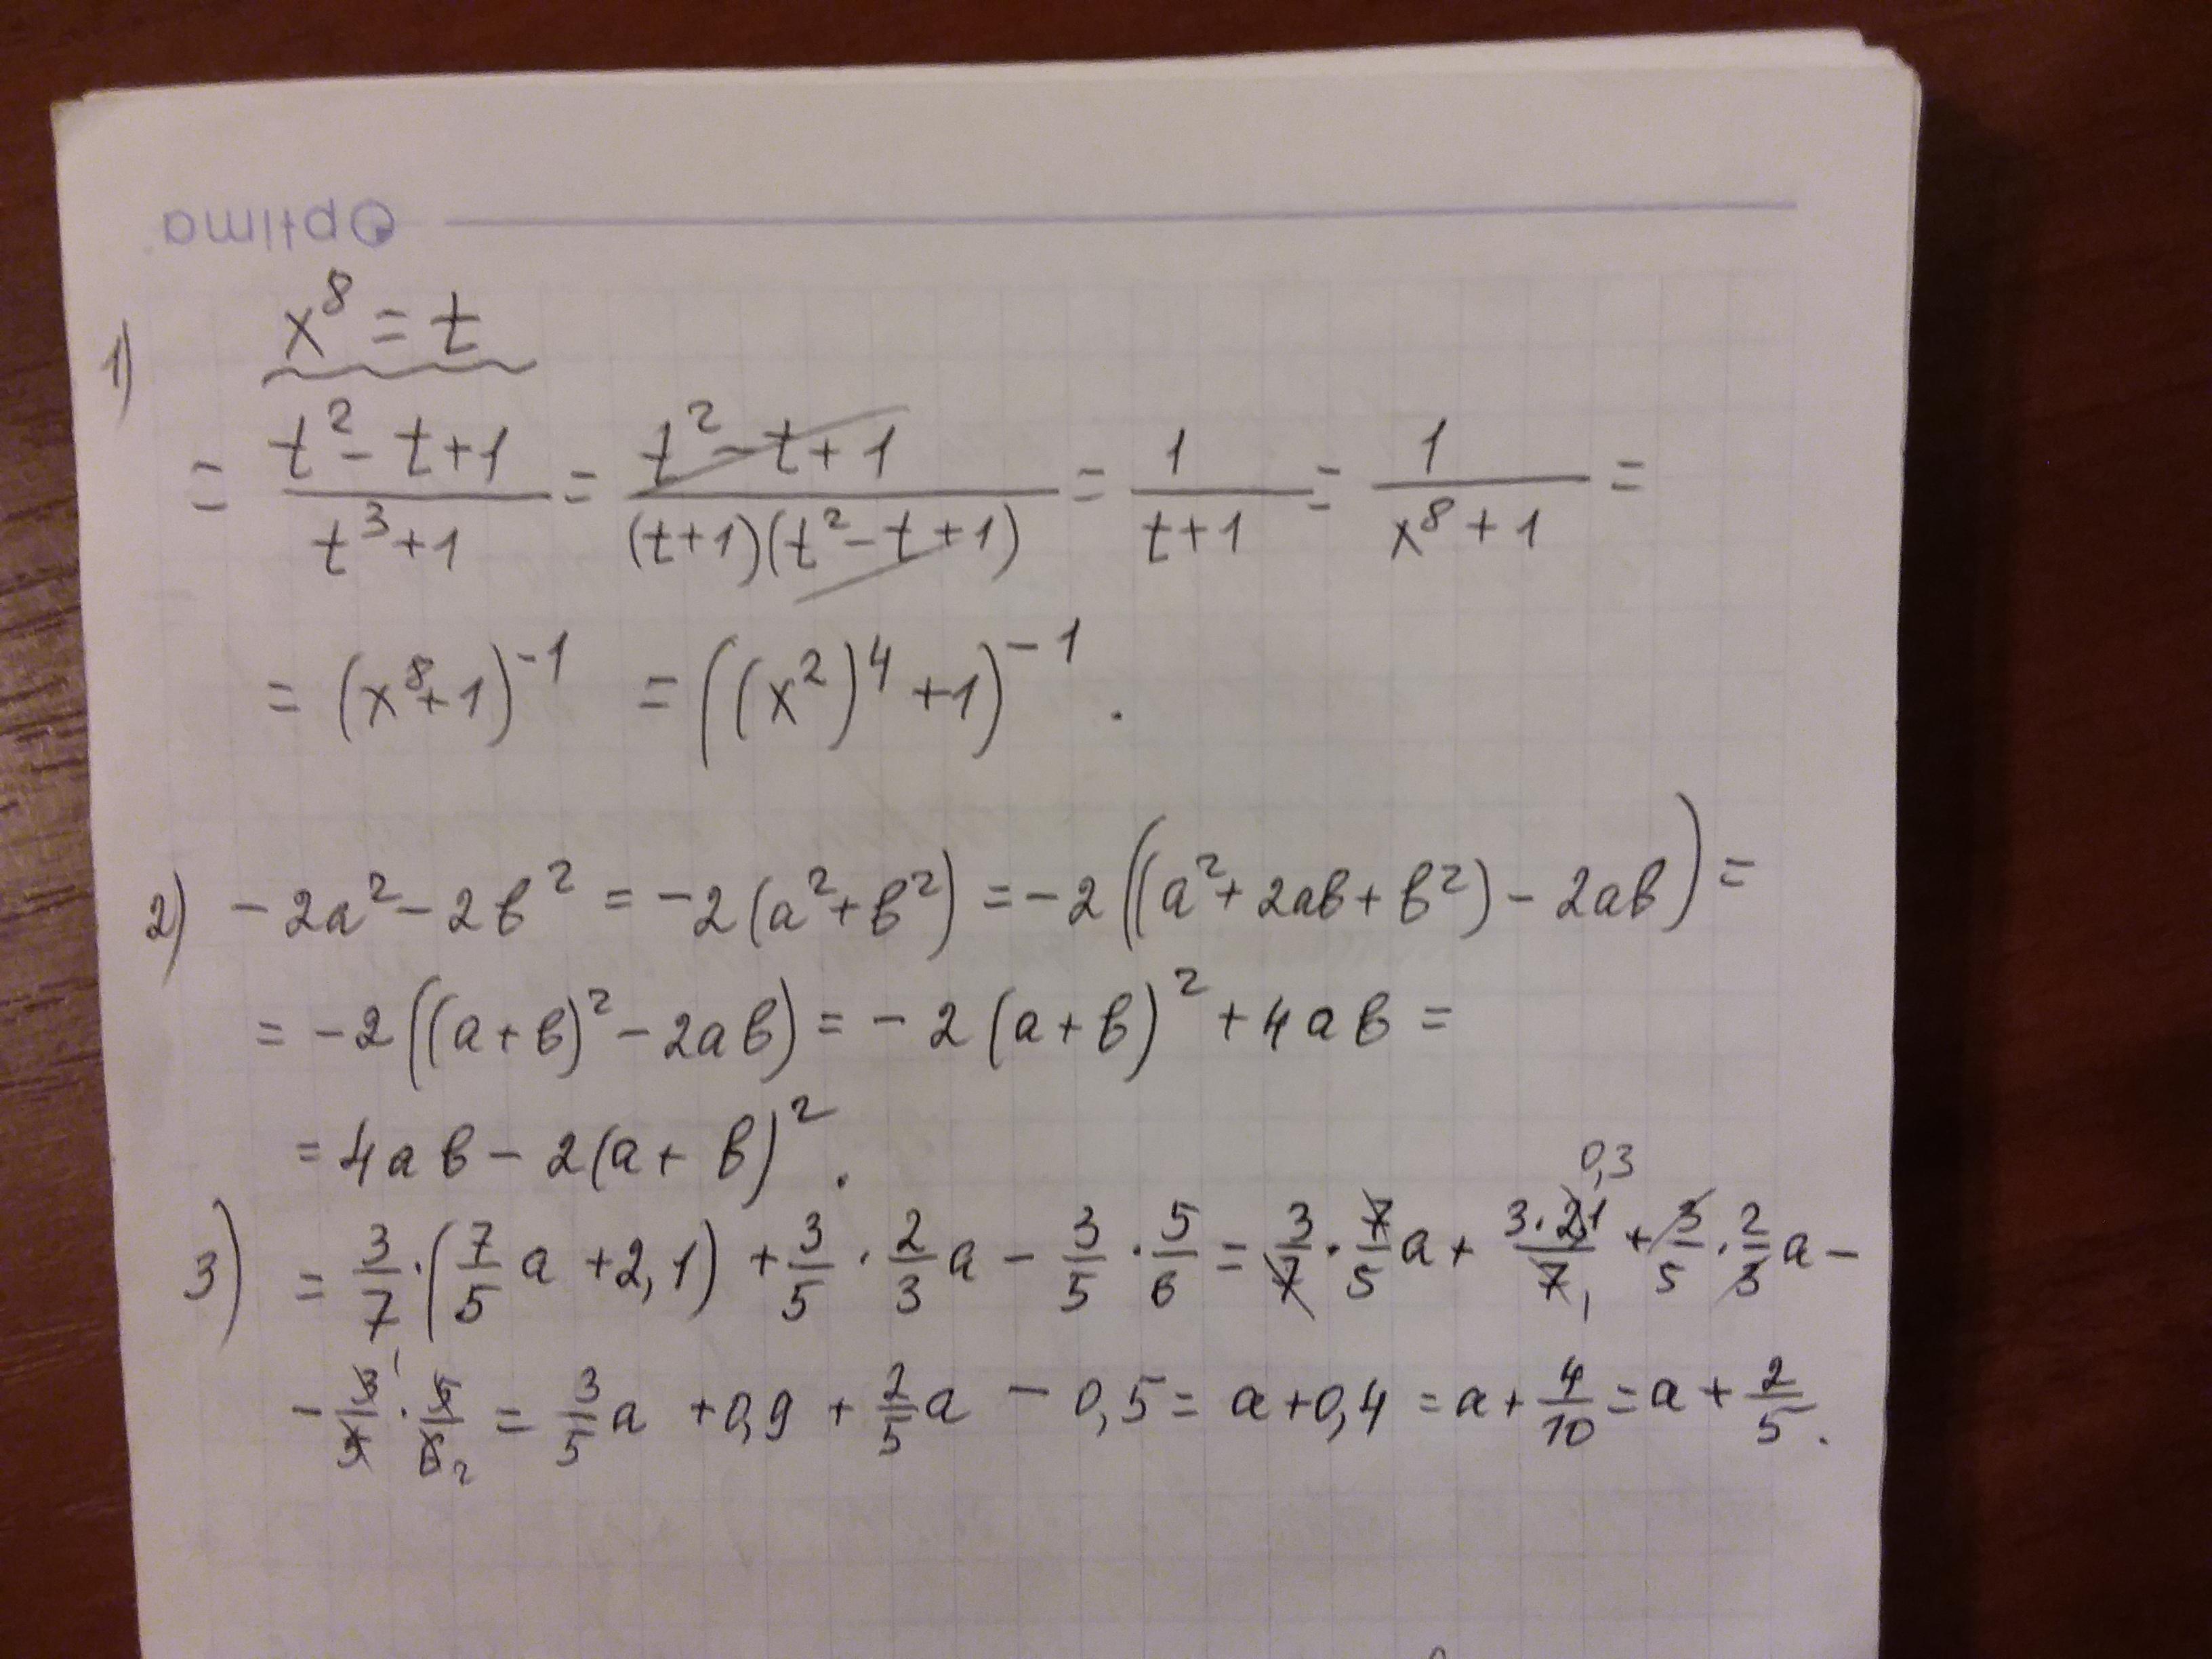 Optima
1) x⁸ = t
= (t² - t + 1)/(t³ + 1) = (t² - t + 1)/((t+1)(t² - t + 1)) = 1/(t+1) = 1/(x⁸ + 1) =
= (x⁸ + 1)⁻¹ = ((x²)⁴ + 1)⁻¹.
2) -2a² - 2b² = -2(a² + b²) = -2((a² + 2ab + b²) - 2ab) =
= -2((a+b)² - 2ab) = -2(a+b)² + 4ab =
= 4ab - 2(a+b)².
0,3
3) = 3/7 · (7/5 a + 2,1) + 3/5 · 2/3 a - 3/5 · 5/6 = 3/7 · 7/5 a + 3·2,1/7 1 + 3/5 · 2/3 a -
- 3/5 1 · 5/6 2 = 3/5 a + 0,9 + 2/5 a - 0,5 = a + 0,4 = a + 4/10 = a + 2/5.